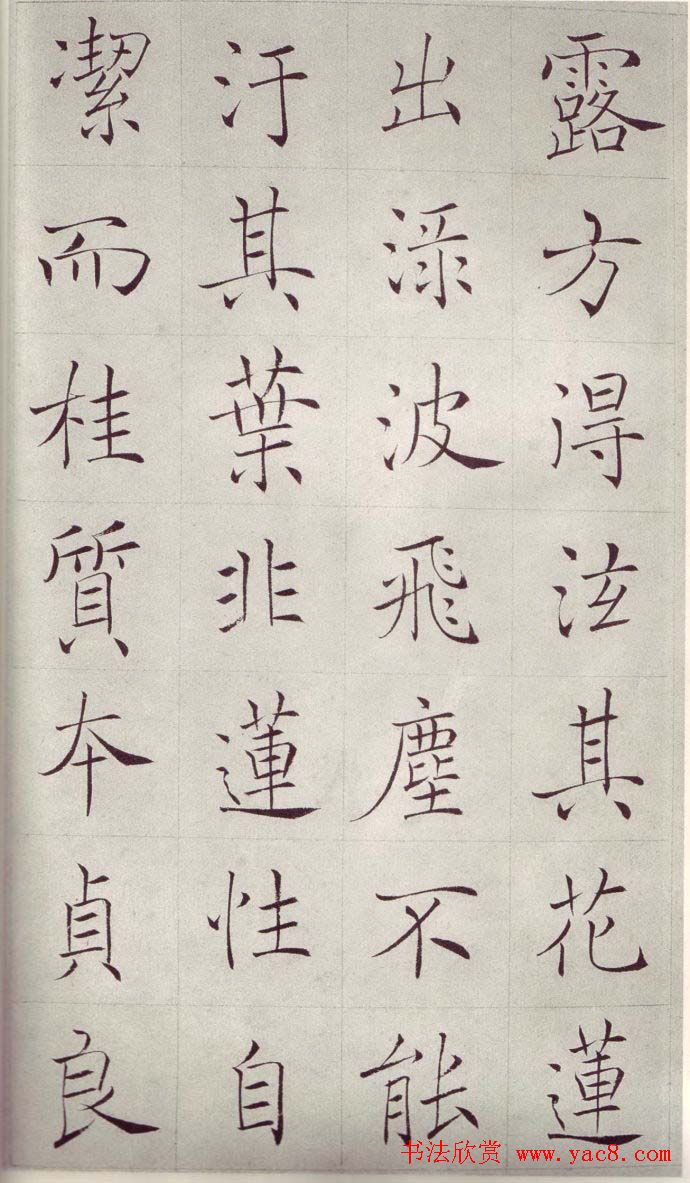 露方得泫其花蓮
出渌波飛塵不能
汙其葉非蓮性自
潔而桂質本貞良
书法欣赏 www.yac8.com